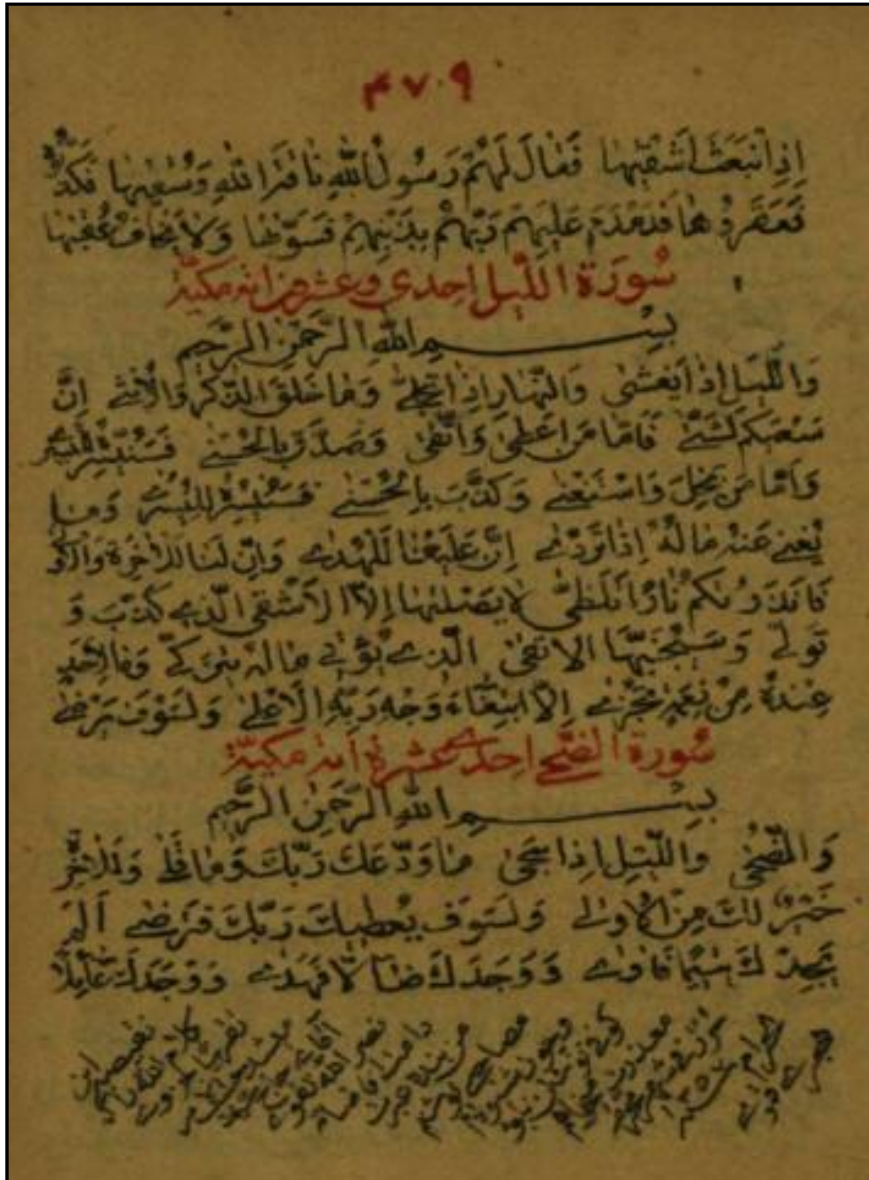 ۴۷۰۹
اِذِ انْبَعَثَ اَشْقٰیهٰا فَقٰالَ لَهُمْ رَسُولُ اللّٰهِ نٰاقَةَ اللّٰهِ وَسُقْیٰهٰا فَكَذَّ
فَعَقَرُوهٰا فَدَمْدَمَ عَلَیْهِمْ رَبُّهُمْ بِذَنْبِهِمْ فَسَوّٰیهٰا وَلٰا یَخٰافُ عُقْبٰیهٰا
سُورَةُ اللَّیل اِحدی و عشرون ایه مکیّة
بِسْمِ اللّٰهِ الرَّحْمٰنِ الرَّحِیمِ
وَاللَّیْلِ اِذٰا یَغْشٰی وَالنَّهٰارِ اِذٰا تَجَلّٰی وَمٰا خَلَقَ الذَّكَرَ وَالْاُنْثٰی اِنَّ
سَعْیَكُمْ لَشَتّٰی فَاَمّٰا مَنْ اَعْطٰی وَاتَّقٰی وَصَدَّقَ بِالْحُسْنٰی فَسَنُیَسِّرُهُ لِلْیُسْرٰی
وَاَمّٰا مَنْ بَخِلَ وَاسْتَغْنٰی وَكَذَّبَ بِالْحُسْنٰی فَسَنُیَسِّرُهُ لِلْعُسْرٰی وَمٰا
یُغْنِی عَنْهُ مٰالُهُ اِذٰا تَرَدّٰی اِنَّ عَلَیْنٰا لَلْهُدٰی وَاِنَّ لَنٰا لَلْاٰخِرَةَ وَالْاُو
فَاَنْذَرْتُكُمْ نٰارًا تَلَظّٰی لٰا یَصْلٰیهٰا اِلَّا الْاَشْقَی الَّذِی كَذَّبَ وَ
تَوَلّٰی وَسَیُجَنَّبُهَا الْاَتْقٰی الَّذِی یُؤْتِی مٰالَهُ یَتَزَكّٰی وَمٰا لِاَحَدٍ
عِنْدَهُ مِنْ نِعْمَةٍ تُجْزٰی اِلَّا ابْتِغٰاءَ وَجْهِ رَبِّهِ الْاَعْلٰی وَلَسَوْفَ یَرْضٰی
سُورَةُ الضُّحی احدی عشرة ایه مکیّة
بِسْمِ اللّٰهِ الرَّحْمٰنِ الرَّحِیمِ
وَالضُّحٰی وَاللَّیْلِ اِذٰا سَجٰی مٰا وَدَّعَكَ رَبُّكَ وَمٰا قَلٰی وَلَلْاٰخِرَةُ
خَیْرٌ لَكَ مِنَ الْاُولٰی وَلَسَوْفَ یُعْطِیكَ رَبُّكَ فَتَرْضٰی اَلَمْ
یَجِدْكَ یَتِیمًا فَاٰوٰی وَوَجَدَكَ ضٰالًّا فَهَدٰی وَوَجَدَكَ عٰائِلًا